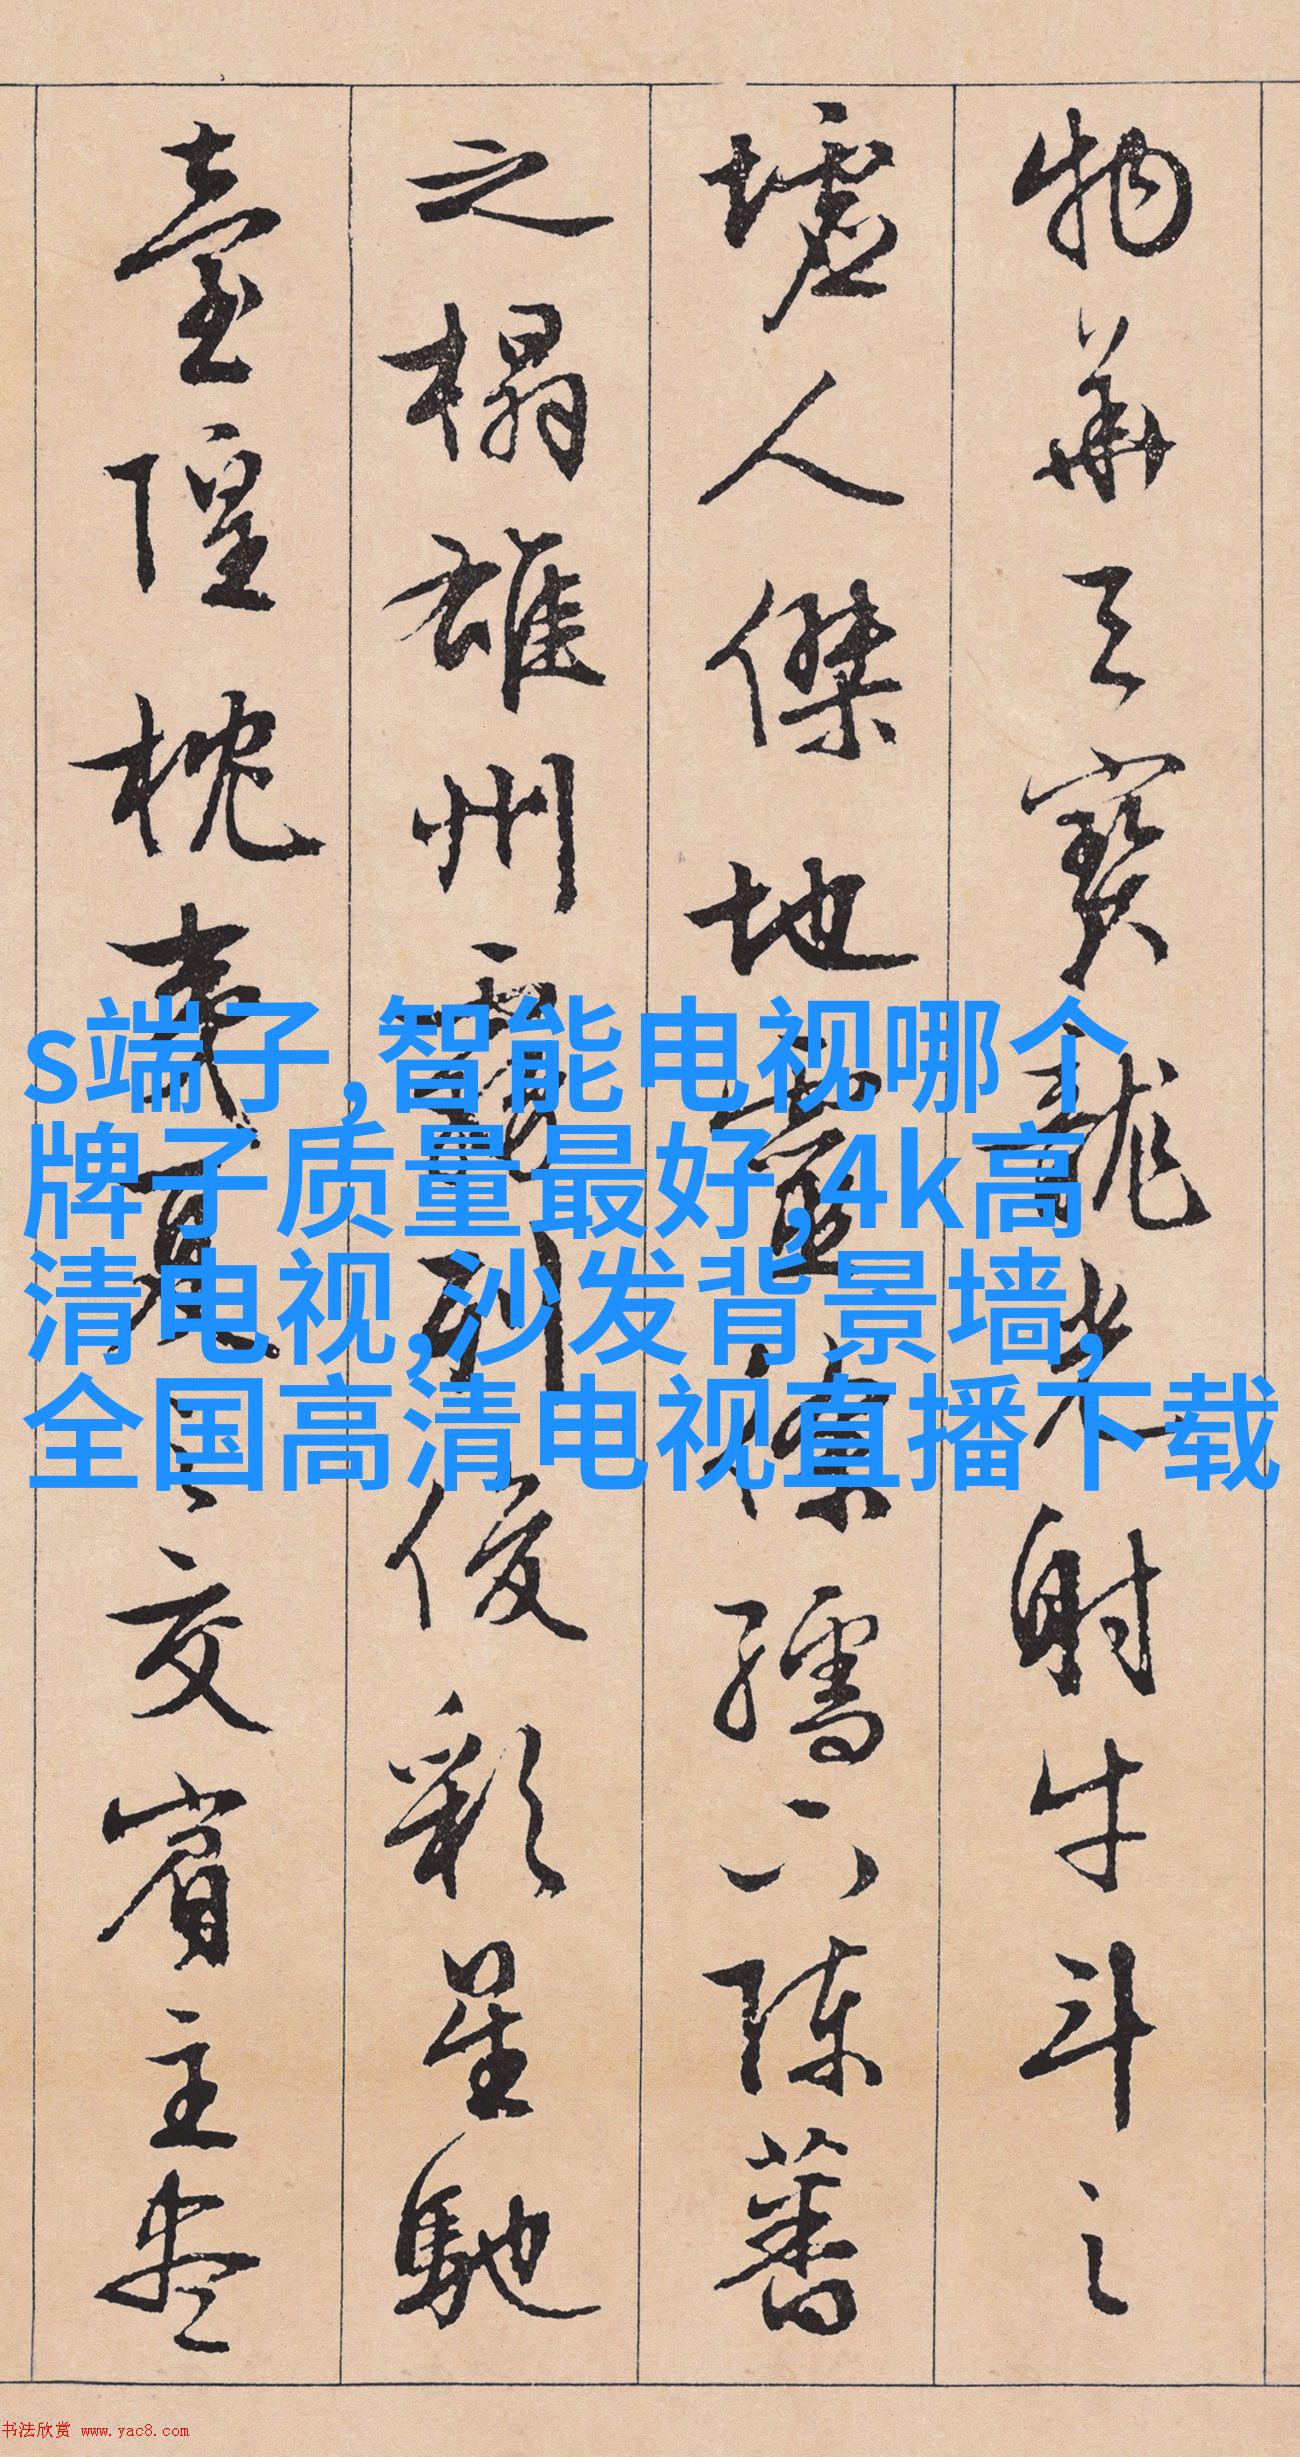 物華天寶龍光射牛斗之
墟人傑地靈徐孺下陳蕃
之榻雄州霧列俊彩星馳
臺隍枕夷夏之交賓主盡
s端子,智能电视哪个
牌子质量最好,4k高
清电视,沙发背景墙,
全国高清电视直播下载
书法欣赏 www.yac8.com